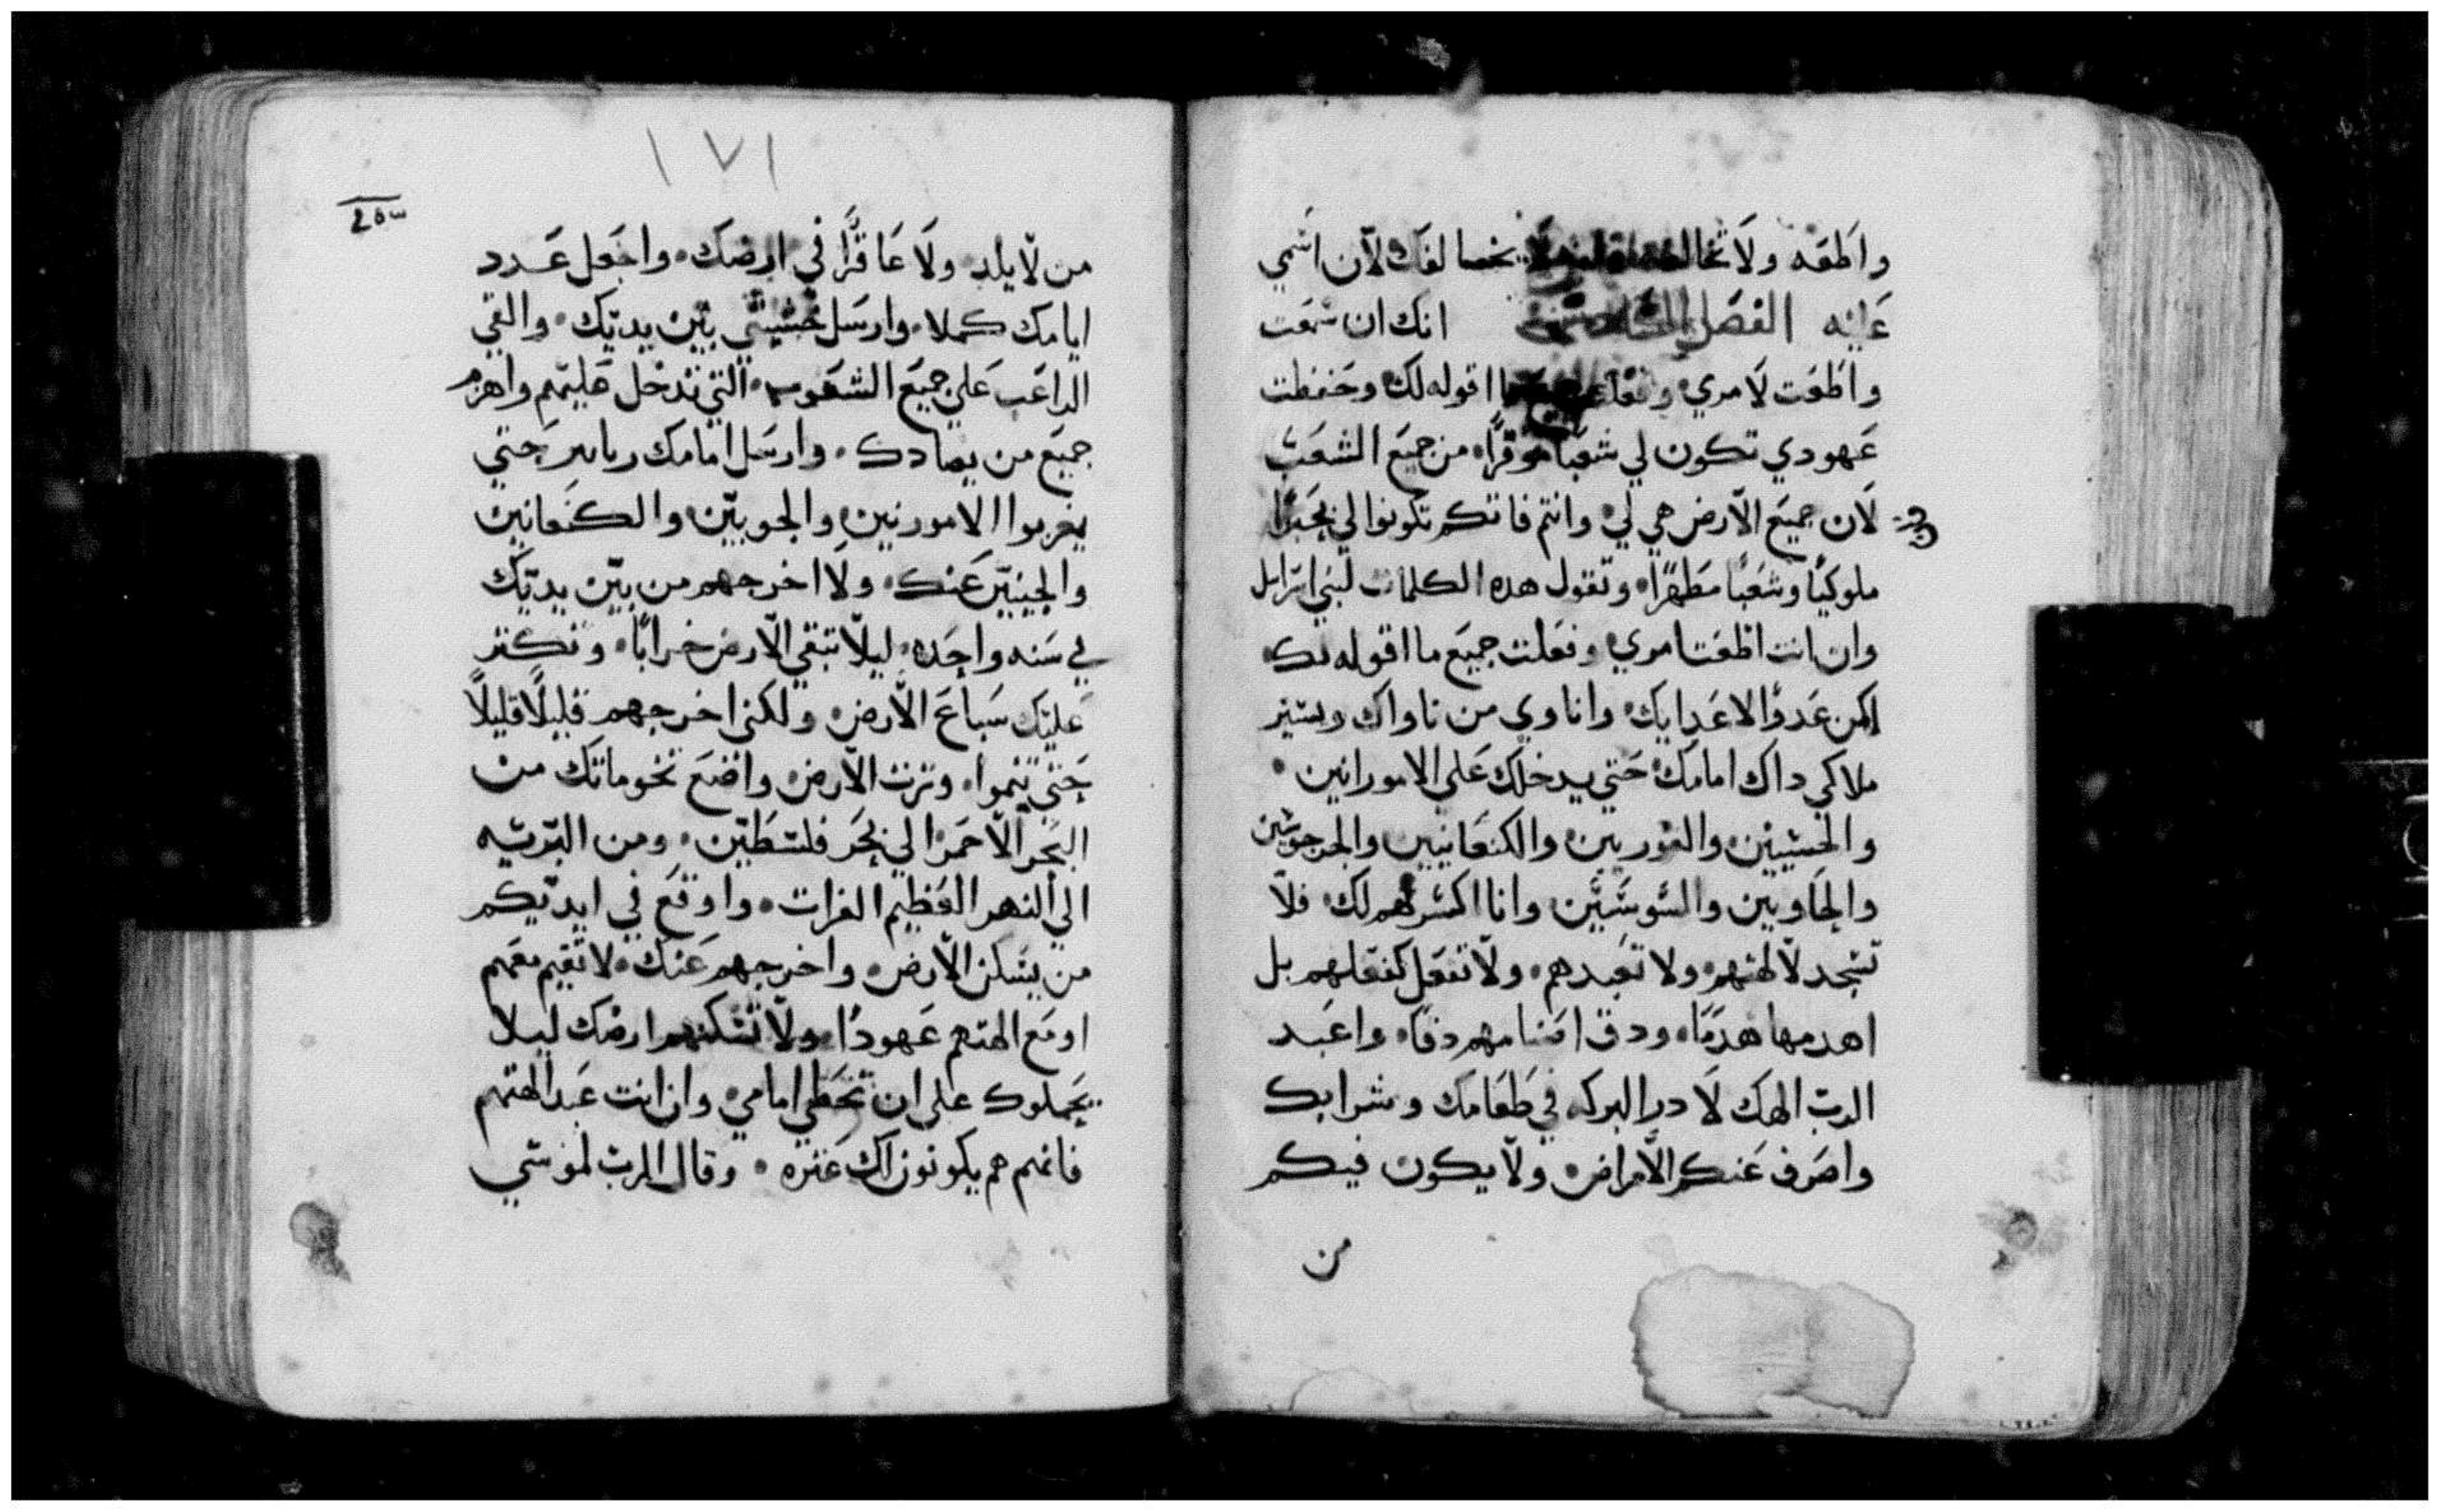 واطعه ولا تخالفه لانه لا يخالفك لان اسمي
عليه الفصل انك ان سمعت
واطعت لامري وفعلت جميع ما اقوله لك وحفظت
عهودي تكون لي شعبًا موقرًا من جميع الشعب
لان جميع الارض هي لي وانتم فانكم تكونوا لي
ملوكيًا وشعبًا مطهرًا وتقول هده الكلمات لبني اسراييل
وان انت اطعت امري وفعلت جميع ما اقوله لك
اكن عدوًا لاعدايك واناوي من ناواك ويسير
ملاكي داك امامك حتي يدخلك علي الامورانين
والحيثيين والفوريين والكنعانيين والجرجوشين
والحاويين واليوسيين وانا اكسرهم لك فلا
تسجد لالهتهم ولا تعبدهم ولا تفعل كفعلهم بل
اهدمها هدمًا ودق اصنامهم دقا واعبد
الرب الهك لادر البركه في طعامك وشرابك
واصرف عنكم الامراض ولا يكون فيكم
من
١٧١
من لا يلد ولا عاقرًا في ارضك واجعل عدد
ايامك كملا وارسل خشيتي بين يديك والقي
الداعب علي جميع الشعوب التي تدخل عليهم واهزم
جميع من يعادك وارسل امامك زنابير حتي
يغربوا الامورنين والحويين والكنعانين
والحيثيين عنك ولا اخرجهم من بين يديك
في سنه واحده ليلا تبقي الارض خرابًا وتكثر
عليك سباع الارض ولكني اخرجهم قليلًا قليلًا
حتي تنموا وترث الارض واضع تخوماتك من
البحر الاحمر الي بحر فلسطين ومن البريه
الي النهر العظيم الفرات واوقع في ايديكم
من يسكن الارض واخرجهم عنك لا تقيم معهم
او مع الهتهم عهودًا ولا تسكنهم ارضك ليلا
يحملوك علي ان تخطي امامي وان انت عبد الهتهم
فانهم هم يكونون لك عثره وقال الرب لموسي